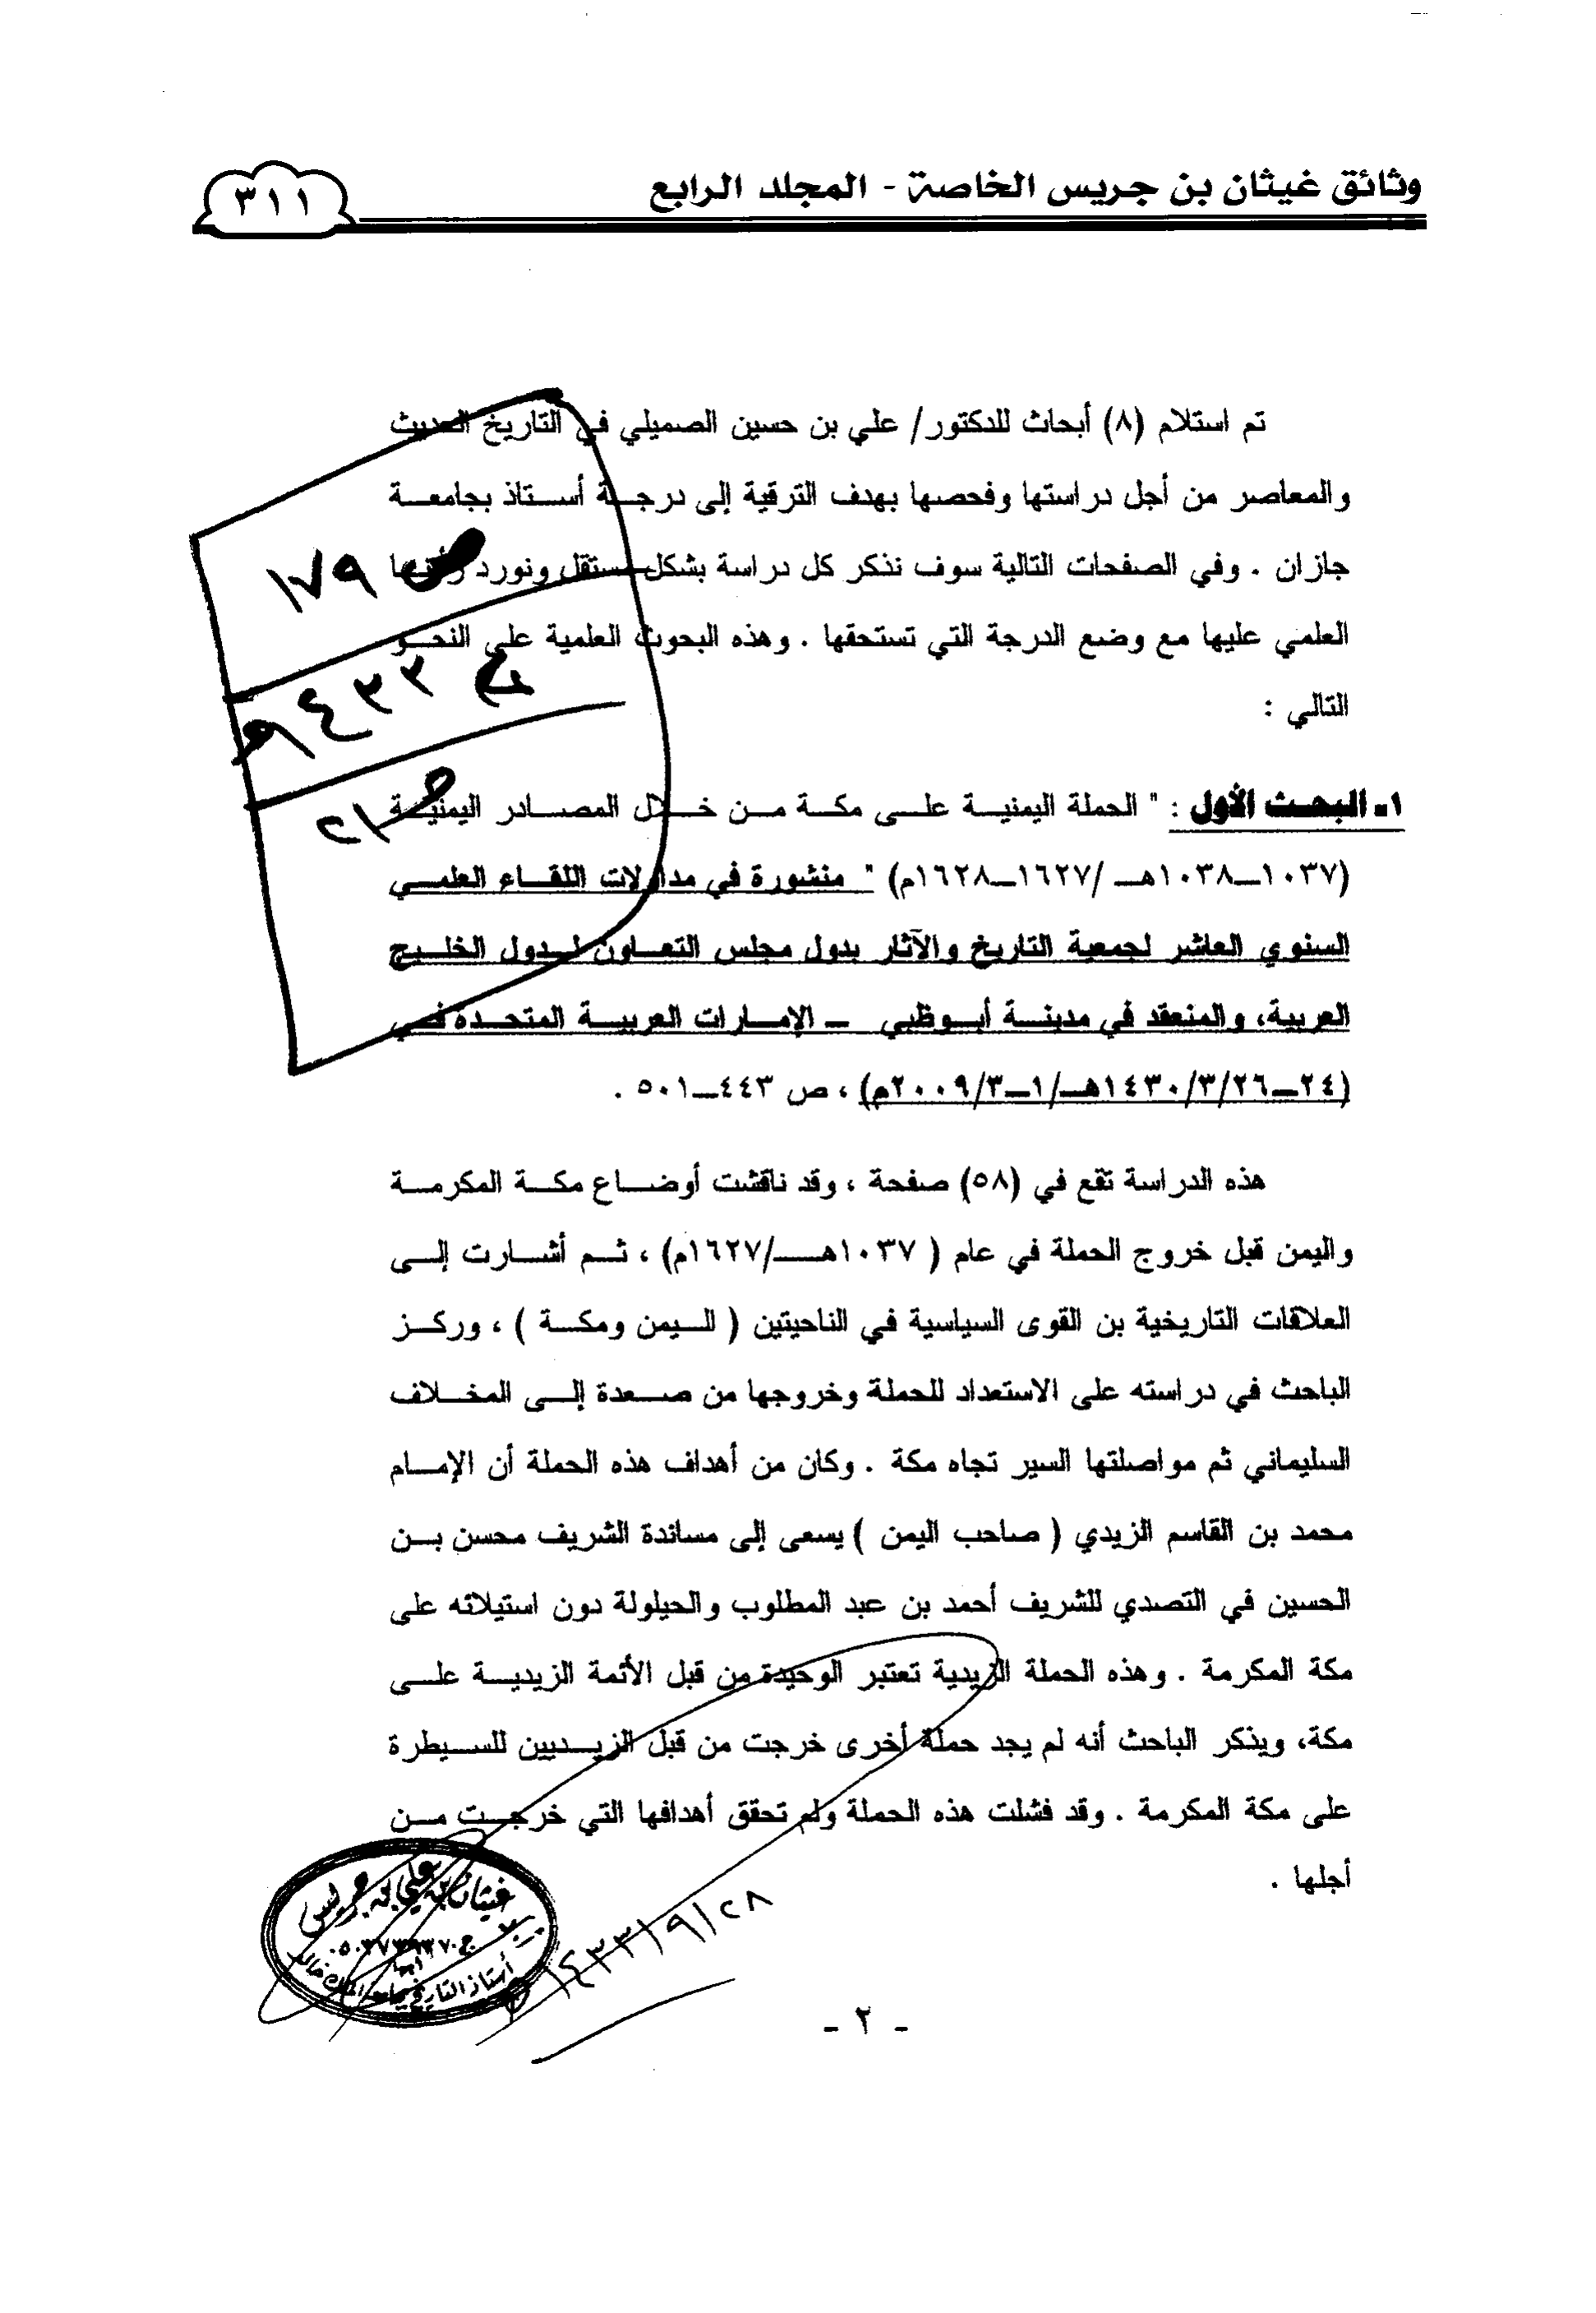 وثائق غيثان بن جريس الخاصة - المجلد الرابع
٣١١
تم استلام (٨) أبحاث للدكتور/ علي بن حسين الصميلي في التاريخ الحديث
والمعاصر من أجل دراستها وفحصها بهدف الترقية إلى درجة أستاذ بجامعة
جازان . وفي الصفحات التالية سوف نذكر كل دراسة بشكل مستقل ونورد
العلمي عليها مع وضع الدرجة التي تستحقها . وهذه البحوث العلمية على النحو
التالي :
ص ١٧٩
ج ١٤٣٣هـ
١- البحث الأول : " الحملة اليمنية على مكة من خلال المصادر اليمنية
(١٠٣٧–١٠٣٨هـ /١٦٢٧–١٦٢٨م) " منشورة في مداولات اللقاء العلمي
السنوي العاشر لجمعية التاريخ والآثار بدول مجلس التعاون لدول الخليج
العربية، والمنعقد في مدينة أبوظبي – الإمارات العربية المتحدة في
(٢٤–١٤٣٠/٣/٢٦هـ/١–٢٠٠٩/٣م) ، ص ٤٤٣–٥٠١ .
هذه الدراسة تقع في (٥٨) صفحة ، وقد ناقشت أوضاع مكة المكرمة
واليمن قبل خروج الحملة في عام ( ١٠٣٧هـ/١٦٢٧م) ، ثم أشارت إلى
العلاقات التاريخية بن القوى السياسية في الناحيتين ( اليمن ومكة ) ، وركز
الباحث في دراسته على الاستعداد للحملة وخروجها من صعدة إلى المخلاف
السليماني ثم مواصلتها السير تجاه مكة . وكان من أهداف هذه الحملة أن الإمام
محمد بن القاسم الزيدي ( صاحب اليمن ) يسعى إلى مساندة الشريف محسن بن
الحسين في التصدي للشريف أحمد بن عبد المطلوب والحيلولة دون استيلائه على
مكة المكرمة . وهذه الحملة الزيدية تعتبر الوحيدة من قبل الأئمة الزيدية على
مكة، ويذكر الباحث أنه لم يجد حملة أخرى خرجت من قبل الزيديين للسيطرة
على مكة المكرمة . وقد فشلت هذه الحملة ولم تحقق أهدافها التي خرجت من
أجلها .
غيثان بن علي بن جريس
أبها
أستاذ التاريخ بجامعة الملك خالد
١٤٣٣/٩/٢٨هـ
- ٢ -